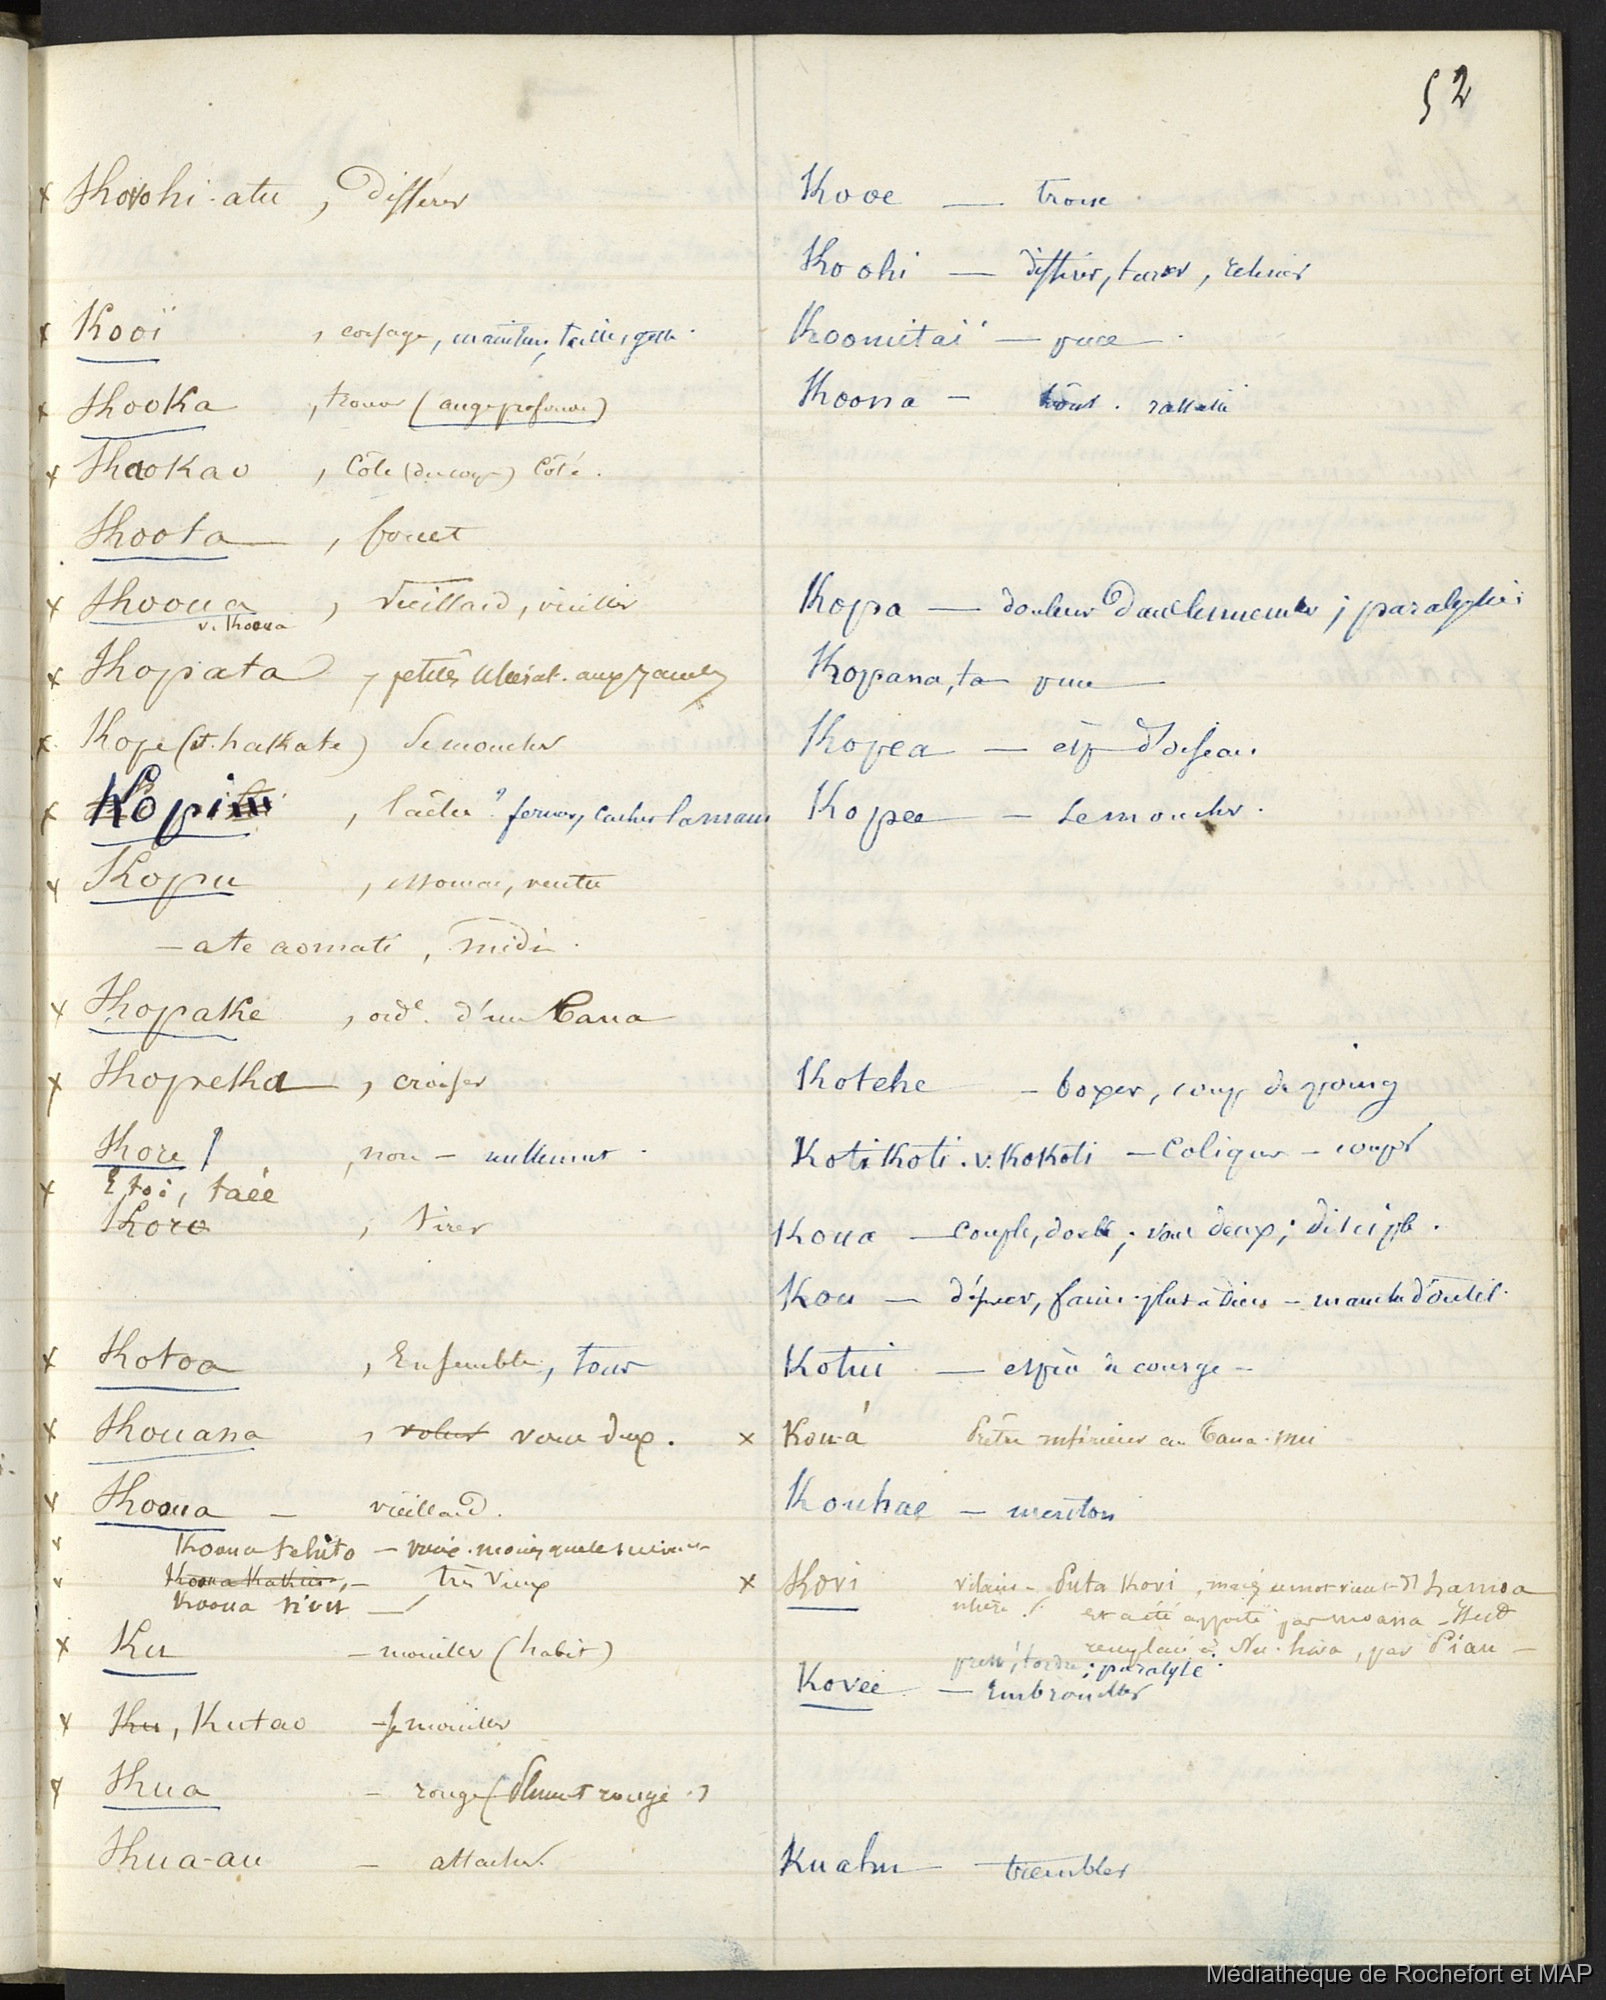 52
x Kovohi-atu, Différer
x Kooï, corsage, maintien, taille, gestes
x Kooka, trouer (auge profonde)
x Kaokao, Côte (du corps) Côté.
Koota, fouet
x Kooua, Vieillard, vieillir
v. Kooua
x Kopata, petites ulcérat. aux jambes
x Kope (et. hakate) Se moucher
x Kopi, lâcher? fermer, cacher la main
x Kopu, estomac, ventre
— ate aomati, midi.
x Kopake, ord.e d'un Taua
x Kopeka, croiser
Kore!, non — nullement
x Etoi, taée
Koro, tirer
x Kotoa, Ensemble, tous
x Kouana, vous deux.
x Kooua — vieillard.
x Kooua tehito — vieux. moins que le suivant
x Kooua Kakiu, — très vieux
Kooua
x Ku — mouiller (habit)
x Ku, Kutao — se mouiller
x Kua — rouge (Plument rouge.)
Kua-au — attacher.
Kooe — trouve
Koohi — différer, tarder
Koomitaï — puce
Koona — ratatiné
Kopa — douleur d'accouchement; paralysie;
Kopana, ta puce
Kopea — esp d'oiseau
Kopee — se moucher.
Kotehe — boxer, coup de poing
Kotikoti. v. Kokoti — Colique — couper
Koua — Couple, double; vous deux; disciple.
Kou — manche d'outil.
Kotui — espèce de courge —
x Kou-á Prêtre inférieur au Taua-nui
Kouhae — menton
x Kovi vilain — Puta Kovi, mais ce mot vient de Samoa
et a été apporté par Moana — Il est
remplacé à Nu-hiva, par Piau —
; paralysé.
Kovee — Embrouiller
Kuahu — trembler
Médiathèque de Rochefort et MAP